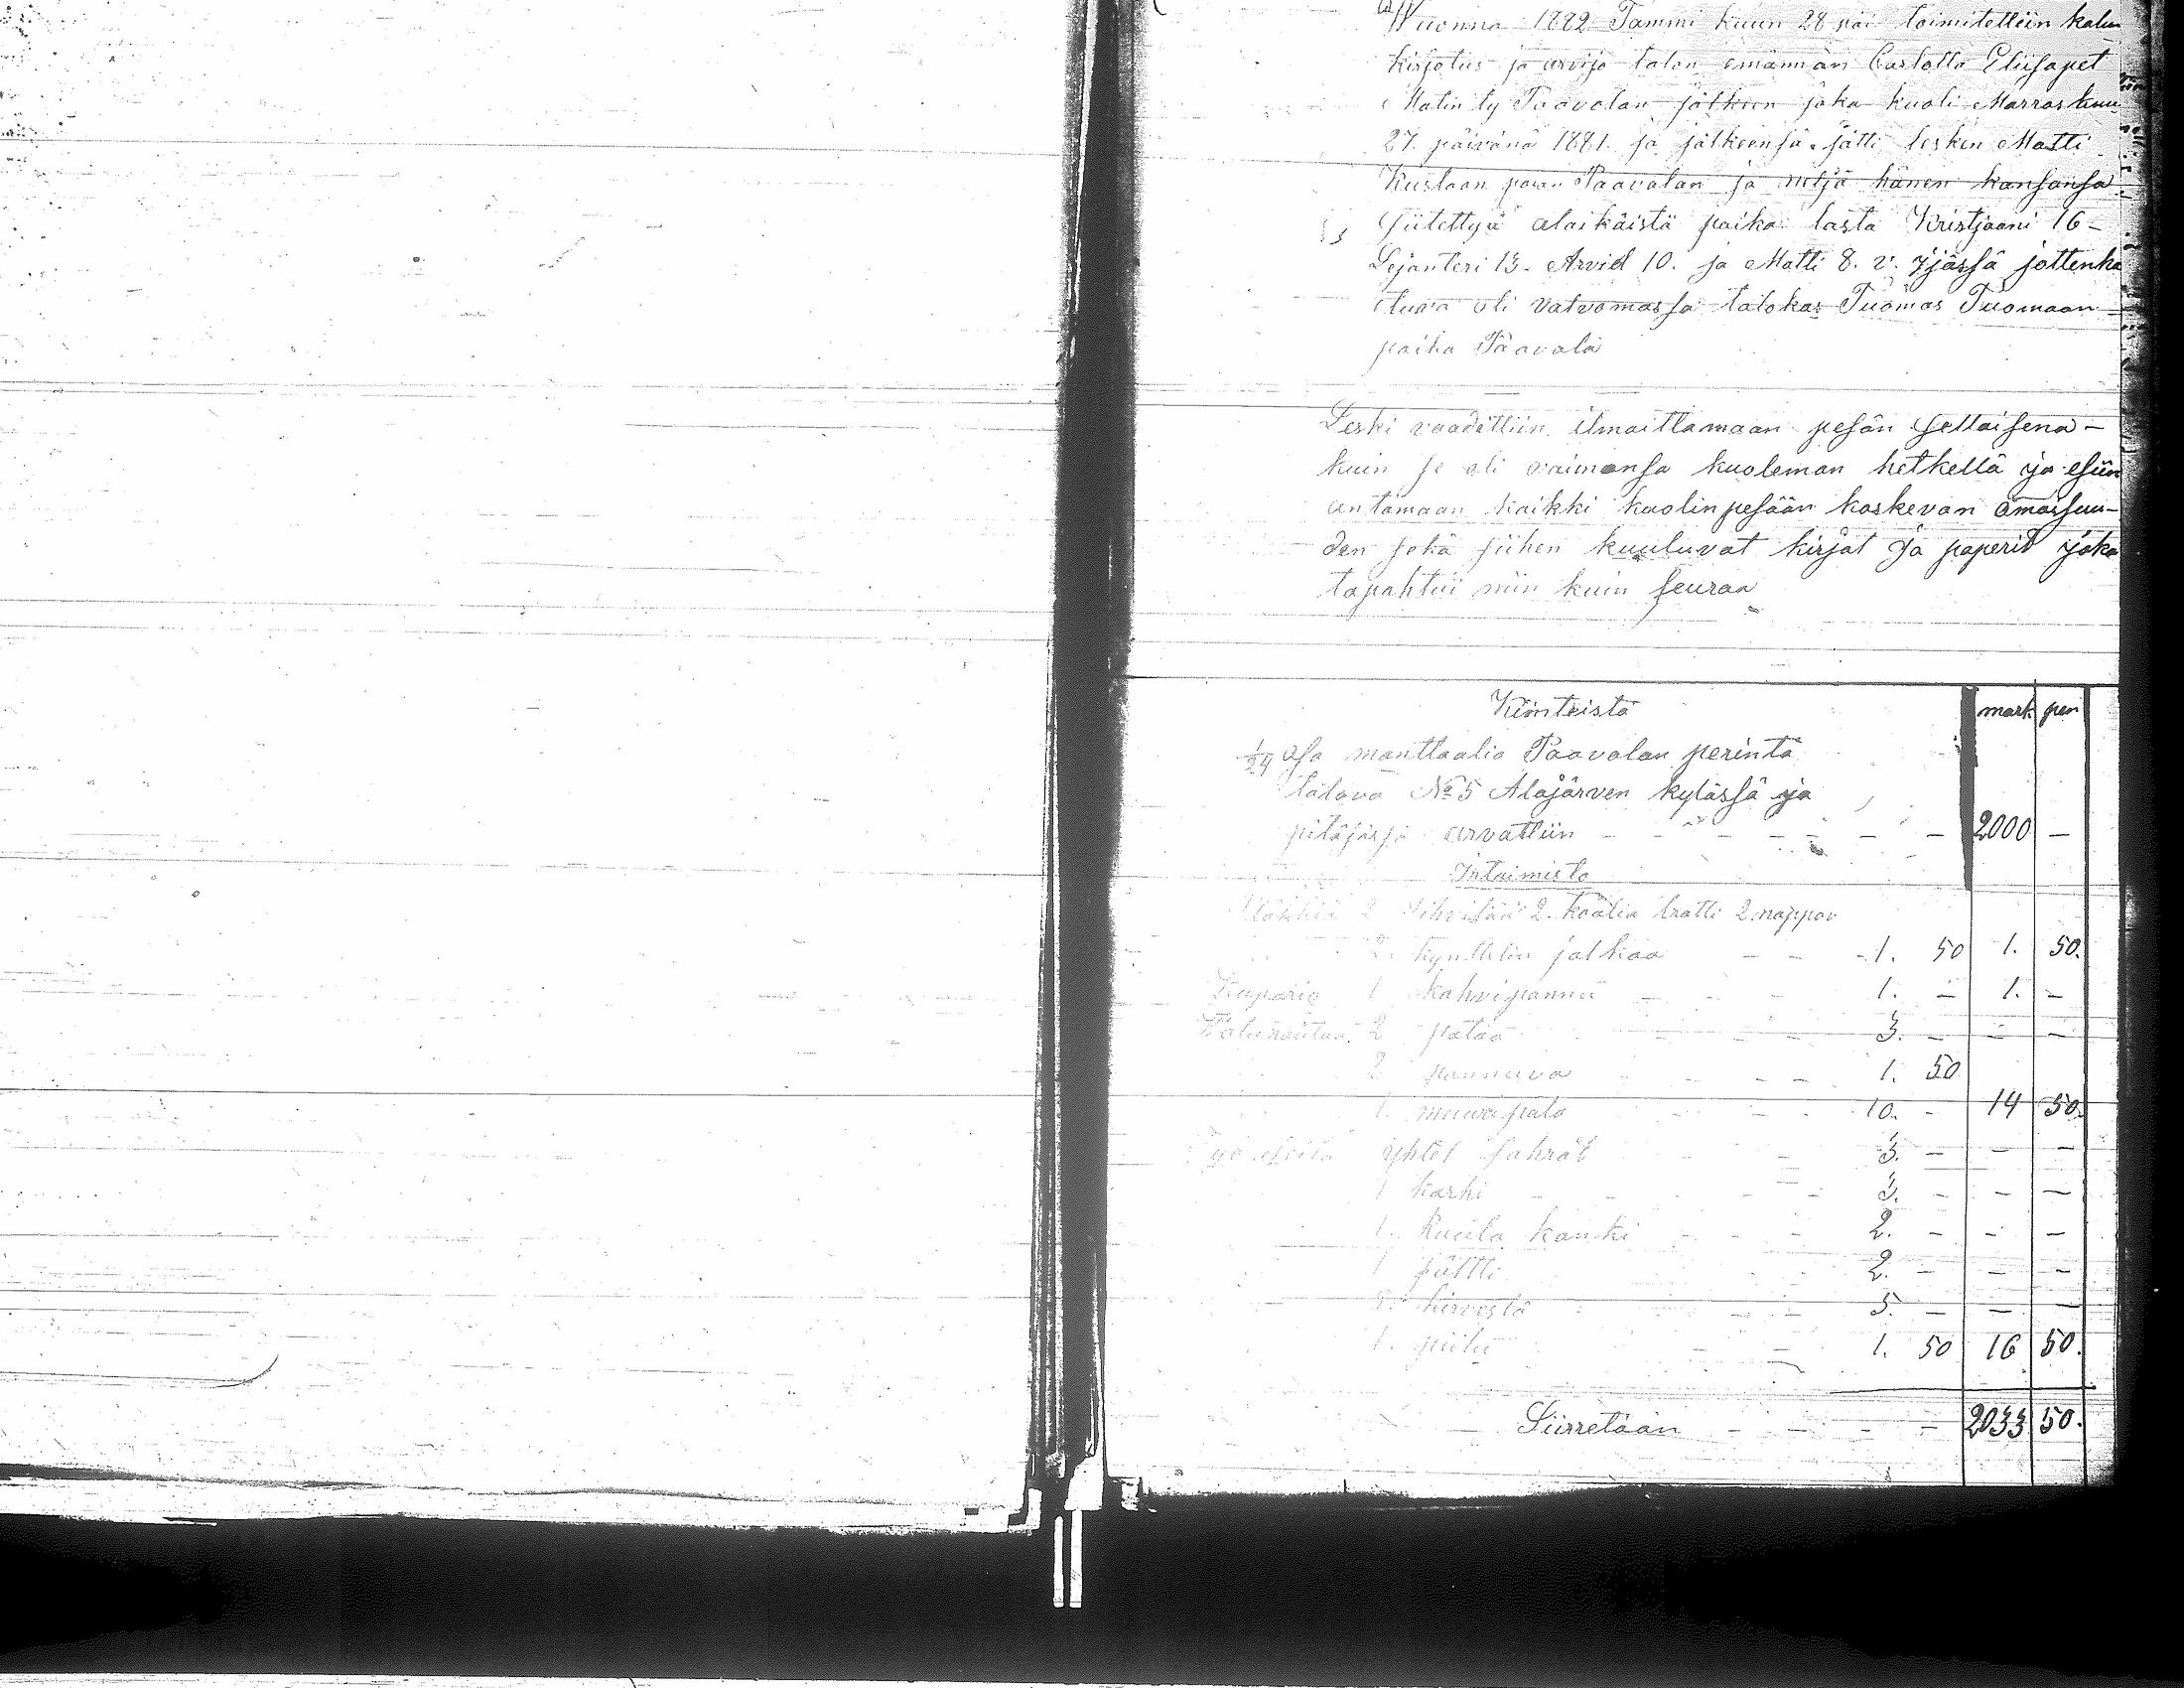 Wuonna 1882 Tammi kuun 28 päi toimitettiin kalun
kirjotus ja arvijo talon emännän Carlotta Eliisapet
Matin ty Paavolan jälkeen joka kuoli Marras kuu
27. päivänä 1881. ja jälkeensä jätti lesken Matti
Kustaan pojan Paavolan ja neljä hänen kansansa
siitettyä alaikäistä poika lasta Kristjaani 16 -
Lejanteri 13. Arvid 10. ja Matti 8. v. ijässä jottenka
etuva oli valvomassa talokas Tuomas Tuomaan
poika Paavola
Leski vaadittiin ilmoittamaan pesän sellaisena -
kuin se oli vaimonsa kuoleman hetkellä ja esiin
antamaan kaikki kuolinpesään koskevan omaisuu-
den sekä siihen kuuluvat kirjat ja paperid joka
tapahtui niin kuin seuraa
Kiinteistä mark pen
1/24 osa manttaalia Paavolan perintö
talova № 5 Alajärven kylässä ja
pitäjässä arvattiin - - - - - 2000 -
Irtaimisto
Läkkiä 2 2. kaalia tratti 2 nappov
2. kynttelin jalkaa - - 1. 50 1. 50.
Kuparia 1 kahvipannu - - 1. - 1. -
Valurautaa 2 pataa - - 3. - - -
2 pannuva - - 1. 50
1. muuri pata - - 10. - 14 50.
Työ aseita yhdet sahrat - 3. - - -
1 karhi - - - 3. - - -
1. Rauta kanki - - - 2. - - -
1 jältti - - 2. - - -
5. kirvestä - - 5. - - -
1. piilu - - 1. 50 16 50.
Siirretään - - - - 2033 50.